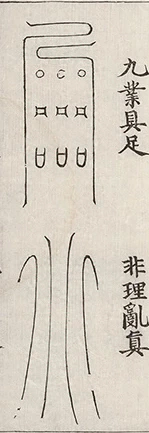 九業具足
非理亂真